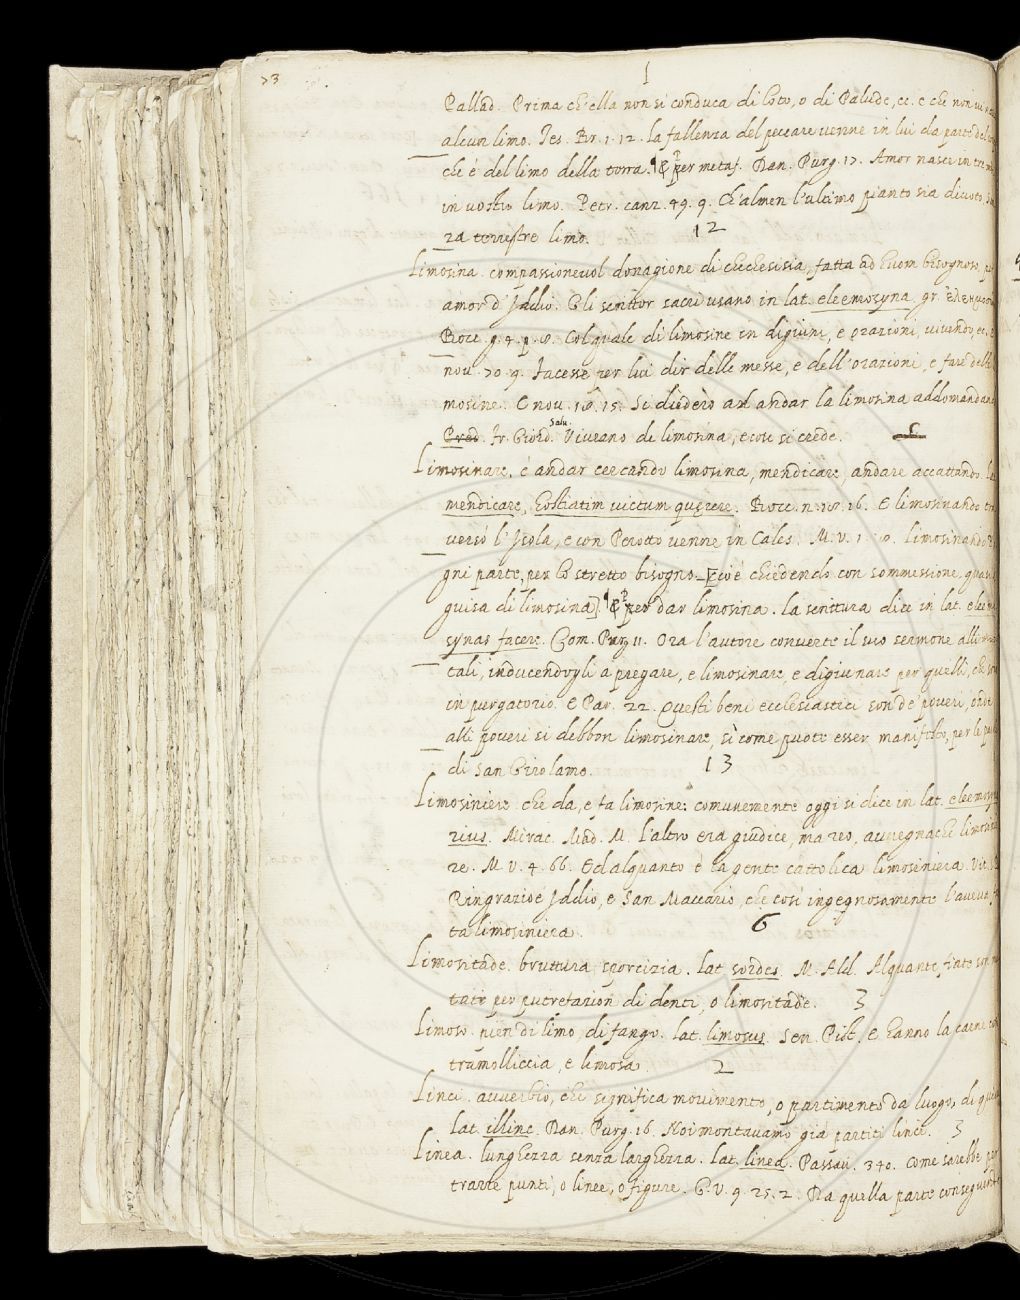 73
1
Pallad. Prima ch'ella non si conduca di loto, o di Palude, ec. e che non
alcun limo. Tes. Br. 1. 12. La fallenza del peccare venne in lui da parte del
che è del limo della terra. ¶ & per metaf. Dan. Purg. 17. Amor nasce in tre
in vostro limo. Petr. canz. 49. 9. Ch'almen l'ultimo pianto sia divoto,
za terrestre limo.
12
Limosina. compassionevol donagione di checchesisia, fatta ad huom bisognoso,
amor d'Iddio. Gli scrittor sacri usano in lat. eleemosyna. gr.
Bocc. g. 4. p. 8. Col quale di limosine in digiuni, e orazioni, vivendo, ec.
nov. 70. 9. Facesse per lui dir delle messe, e dell'orazioni, e fare delle
mosine. E nov. 18. 15. Si diedero ad andar la limosina addomandan
Pred. Fr. Giord. Salu. Vivrano di limosina, e cose si crede.
5
Limosinare. è andar cercando limosina, mendicare, andare accattando.
mendicare, hostiatim victum quęrere. Bocc. n. 18. 16. E limosinando
versò l'Isola, e con Perotto venne in Cales. M. V. 1. 8. limosinando
gni parte, per lo stretto bisogno [cioè chiedendo con sommessione, quasi
guisa di limosina]. ¶ & per dar limosina. la scrittura dice in lat.
synas facere. Com. Purg. 11. Ora l'autore converte il suo sermone alli
tali, inducendogli a pregare, e limosinare, e digiunare per quelli, che
in purgatorio. E Par. 22. Questi beni ecclesiastici son de' poveri, onde
alli poveri si debbon limosinare, sì come puote esser manifesto, per le
di San Girolamo.
13
Limosiniere. che da, e fa limosine: comunemente oggi si dice in lat.
rius. Mirac. Mad. M. L'altro era giudice, ma reo, avvegnachè
re. M. V. 4. 66. Ed alquanto è la gente cattolica limosiniera.
Ringrazioe Iddio, e San Maccario, che così ingegnosamente l'avea
ta limosiniera.
6
Limositade. bruttura, sporcizia. Lat. sordes. M. Ald. Alquante fiate son
tate per putrefazion di denti, o limositade.
3
Limoso. pien di limo, di fango. Lat. limosus. Sen. Pist. E hanno la carne
tramolliccia, e limosa.
2
Linci. avverbio, che significa movimento, o partimento da luogo,
Lat. illinc. Dan. Purg. 16. Noi montavamo già partiti linci.
3
Linea. lunghezza senza larghezza. Lat. linea. Passav. 340. Come sarebbe
trarre punti, o linee, o figure. G. V. 9. 25. 2. Da quella parte